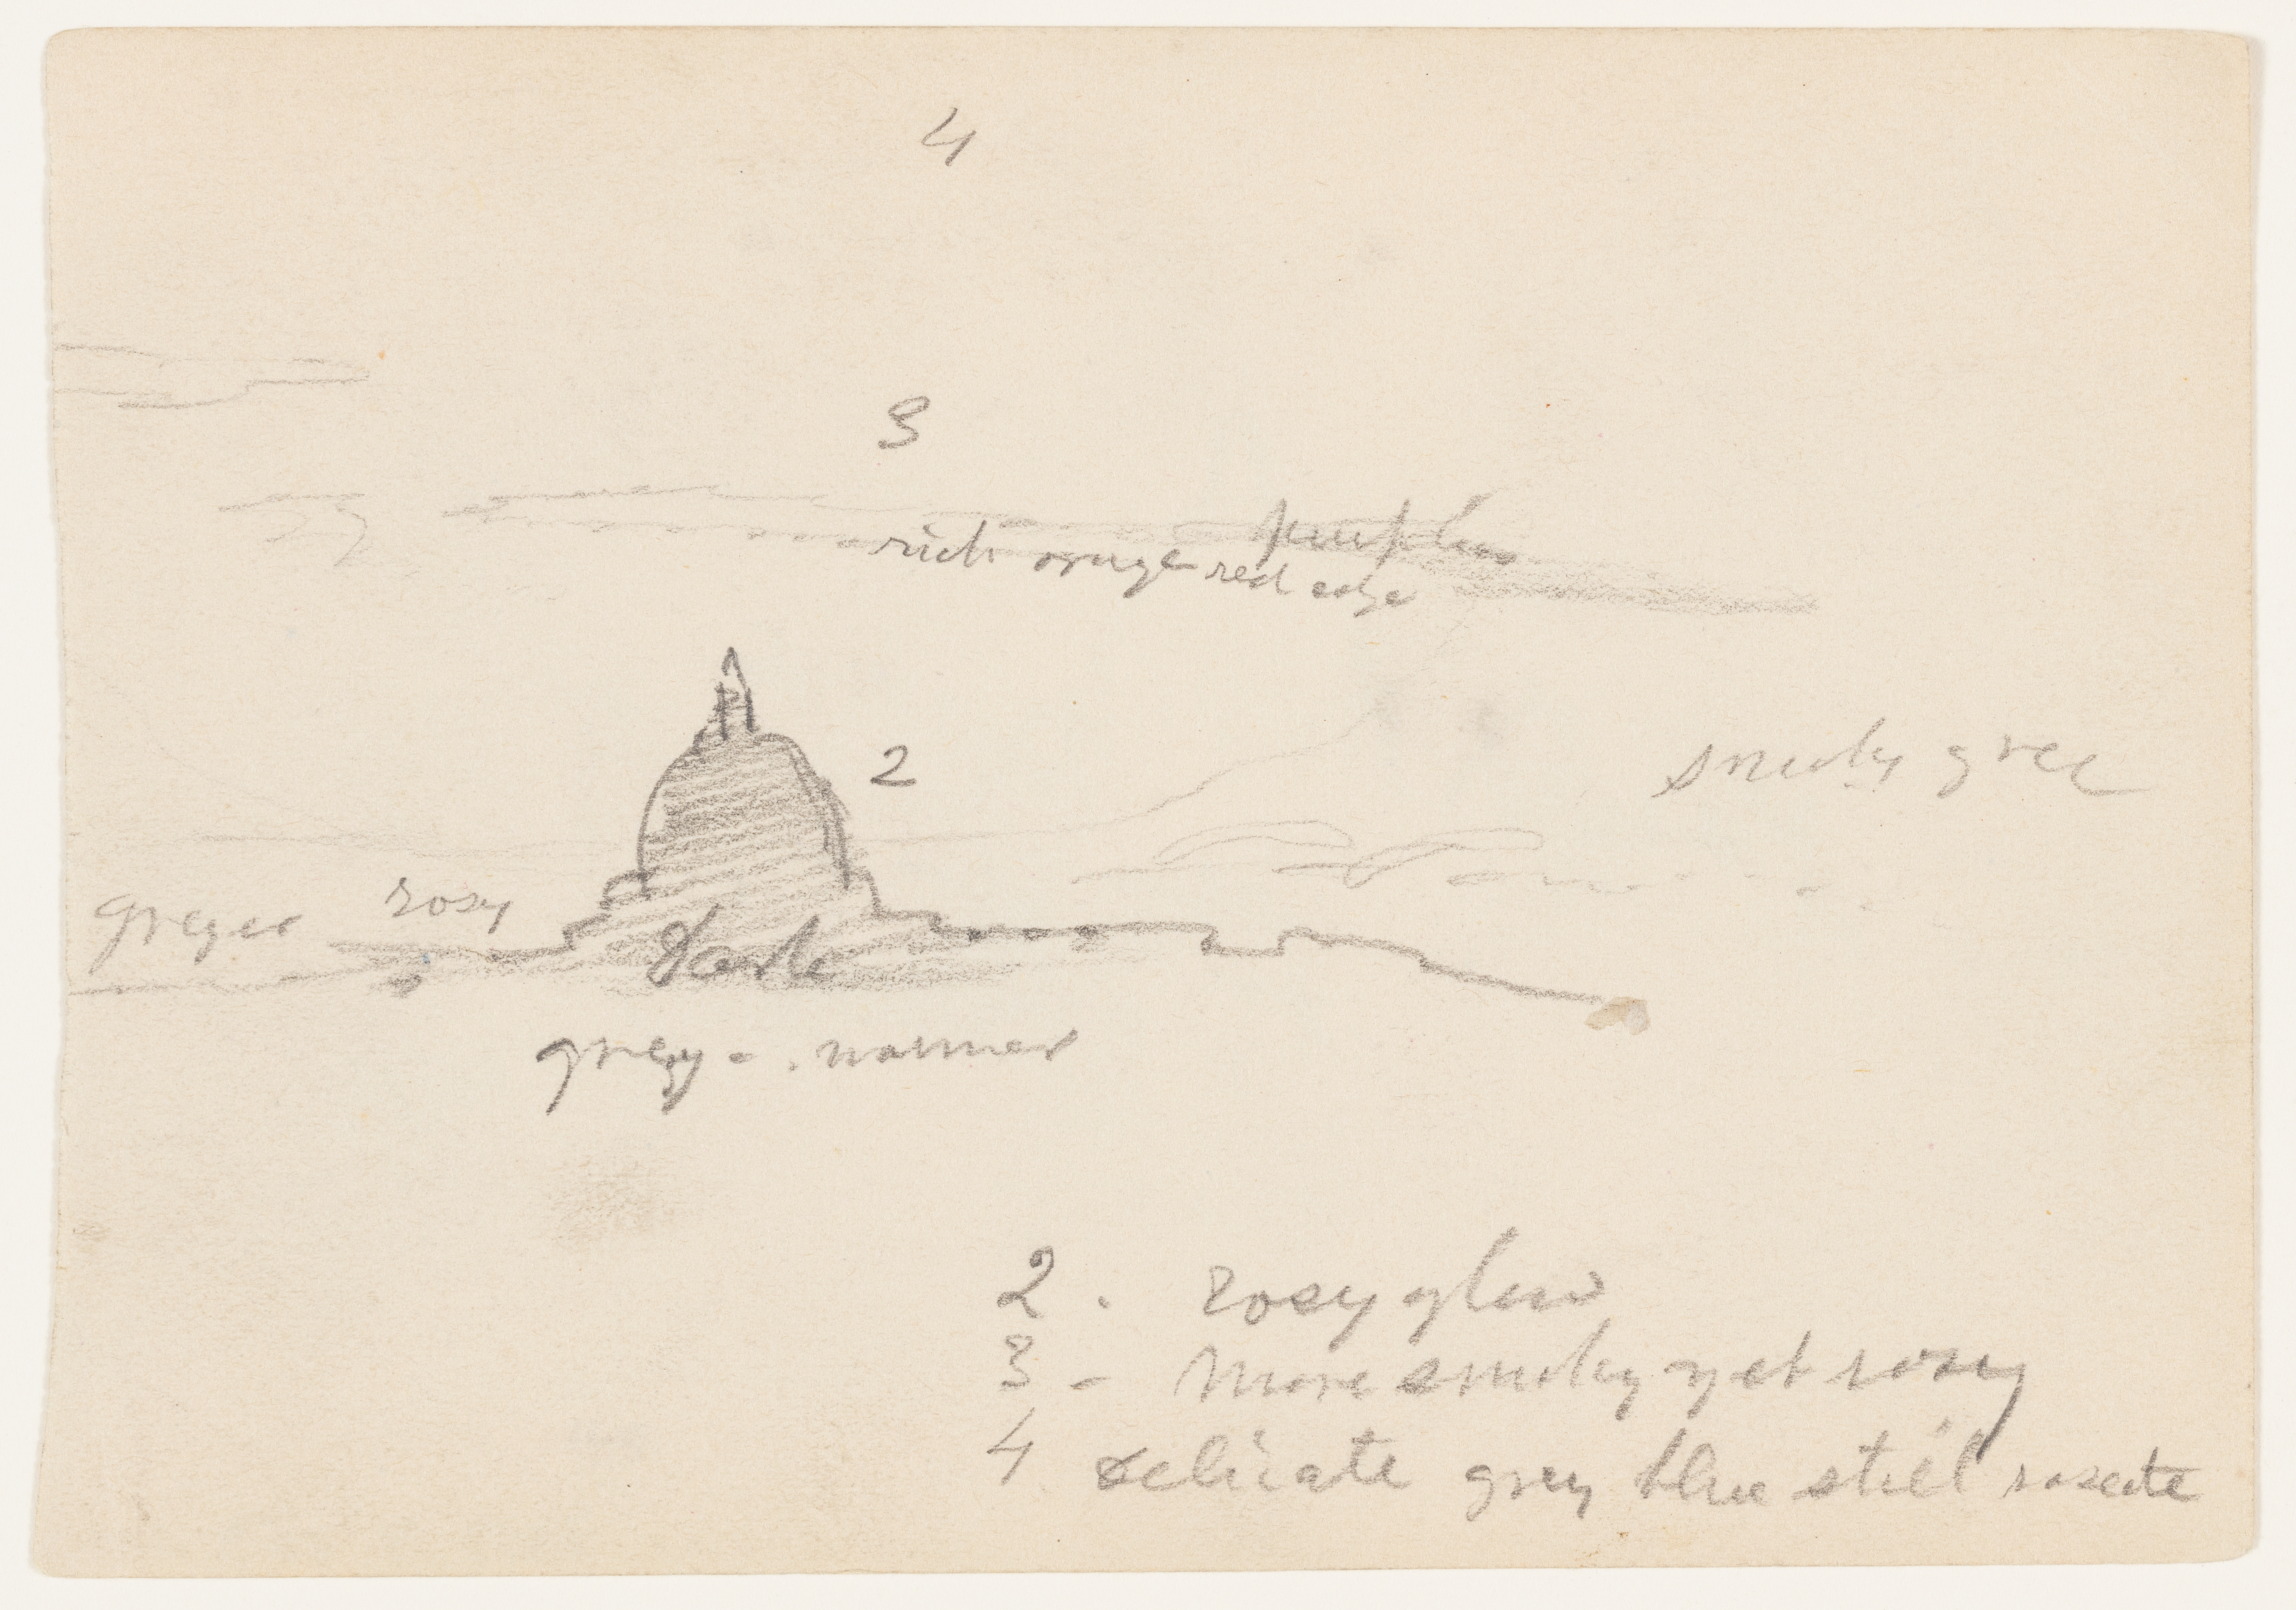 4
3
purplish
rich orange red edge
2
smoky gree
greyer rosy
Dark
grey - . warmer
2 - Rosy glow
3 - More smoky yet rosy
4 delicate grey blue still roseate